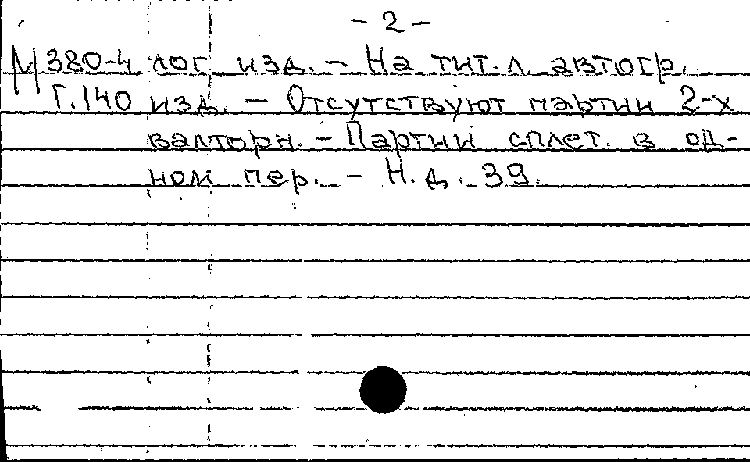 - 2 -
М 380-4 лог изд. - На тит. л. автогр.
Г.140 изд. - Отсутствуют партии 2-х
валторн. - Партии сплет. в од-
ном пер. - Н. д. 39.